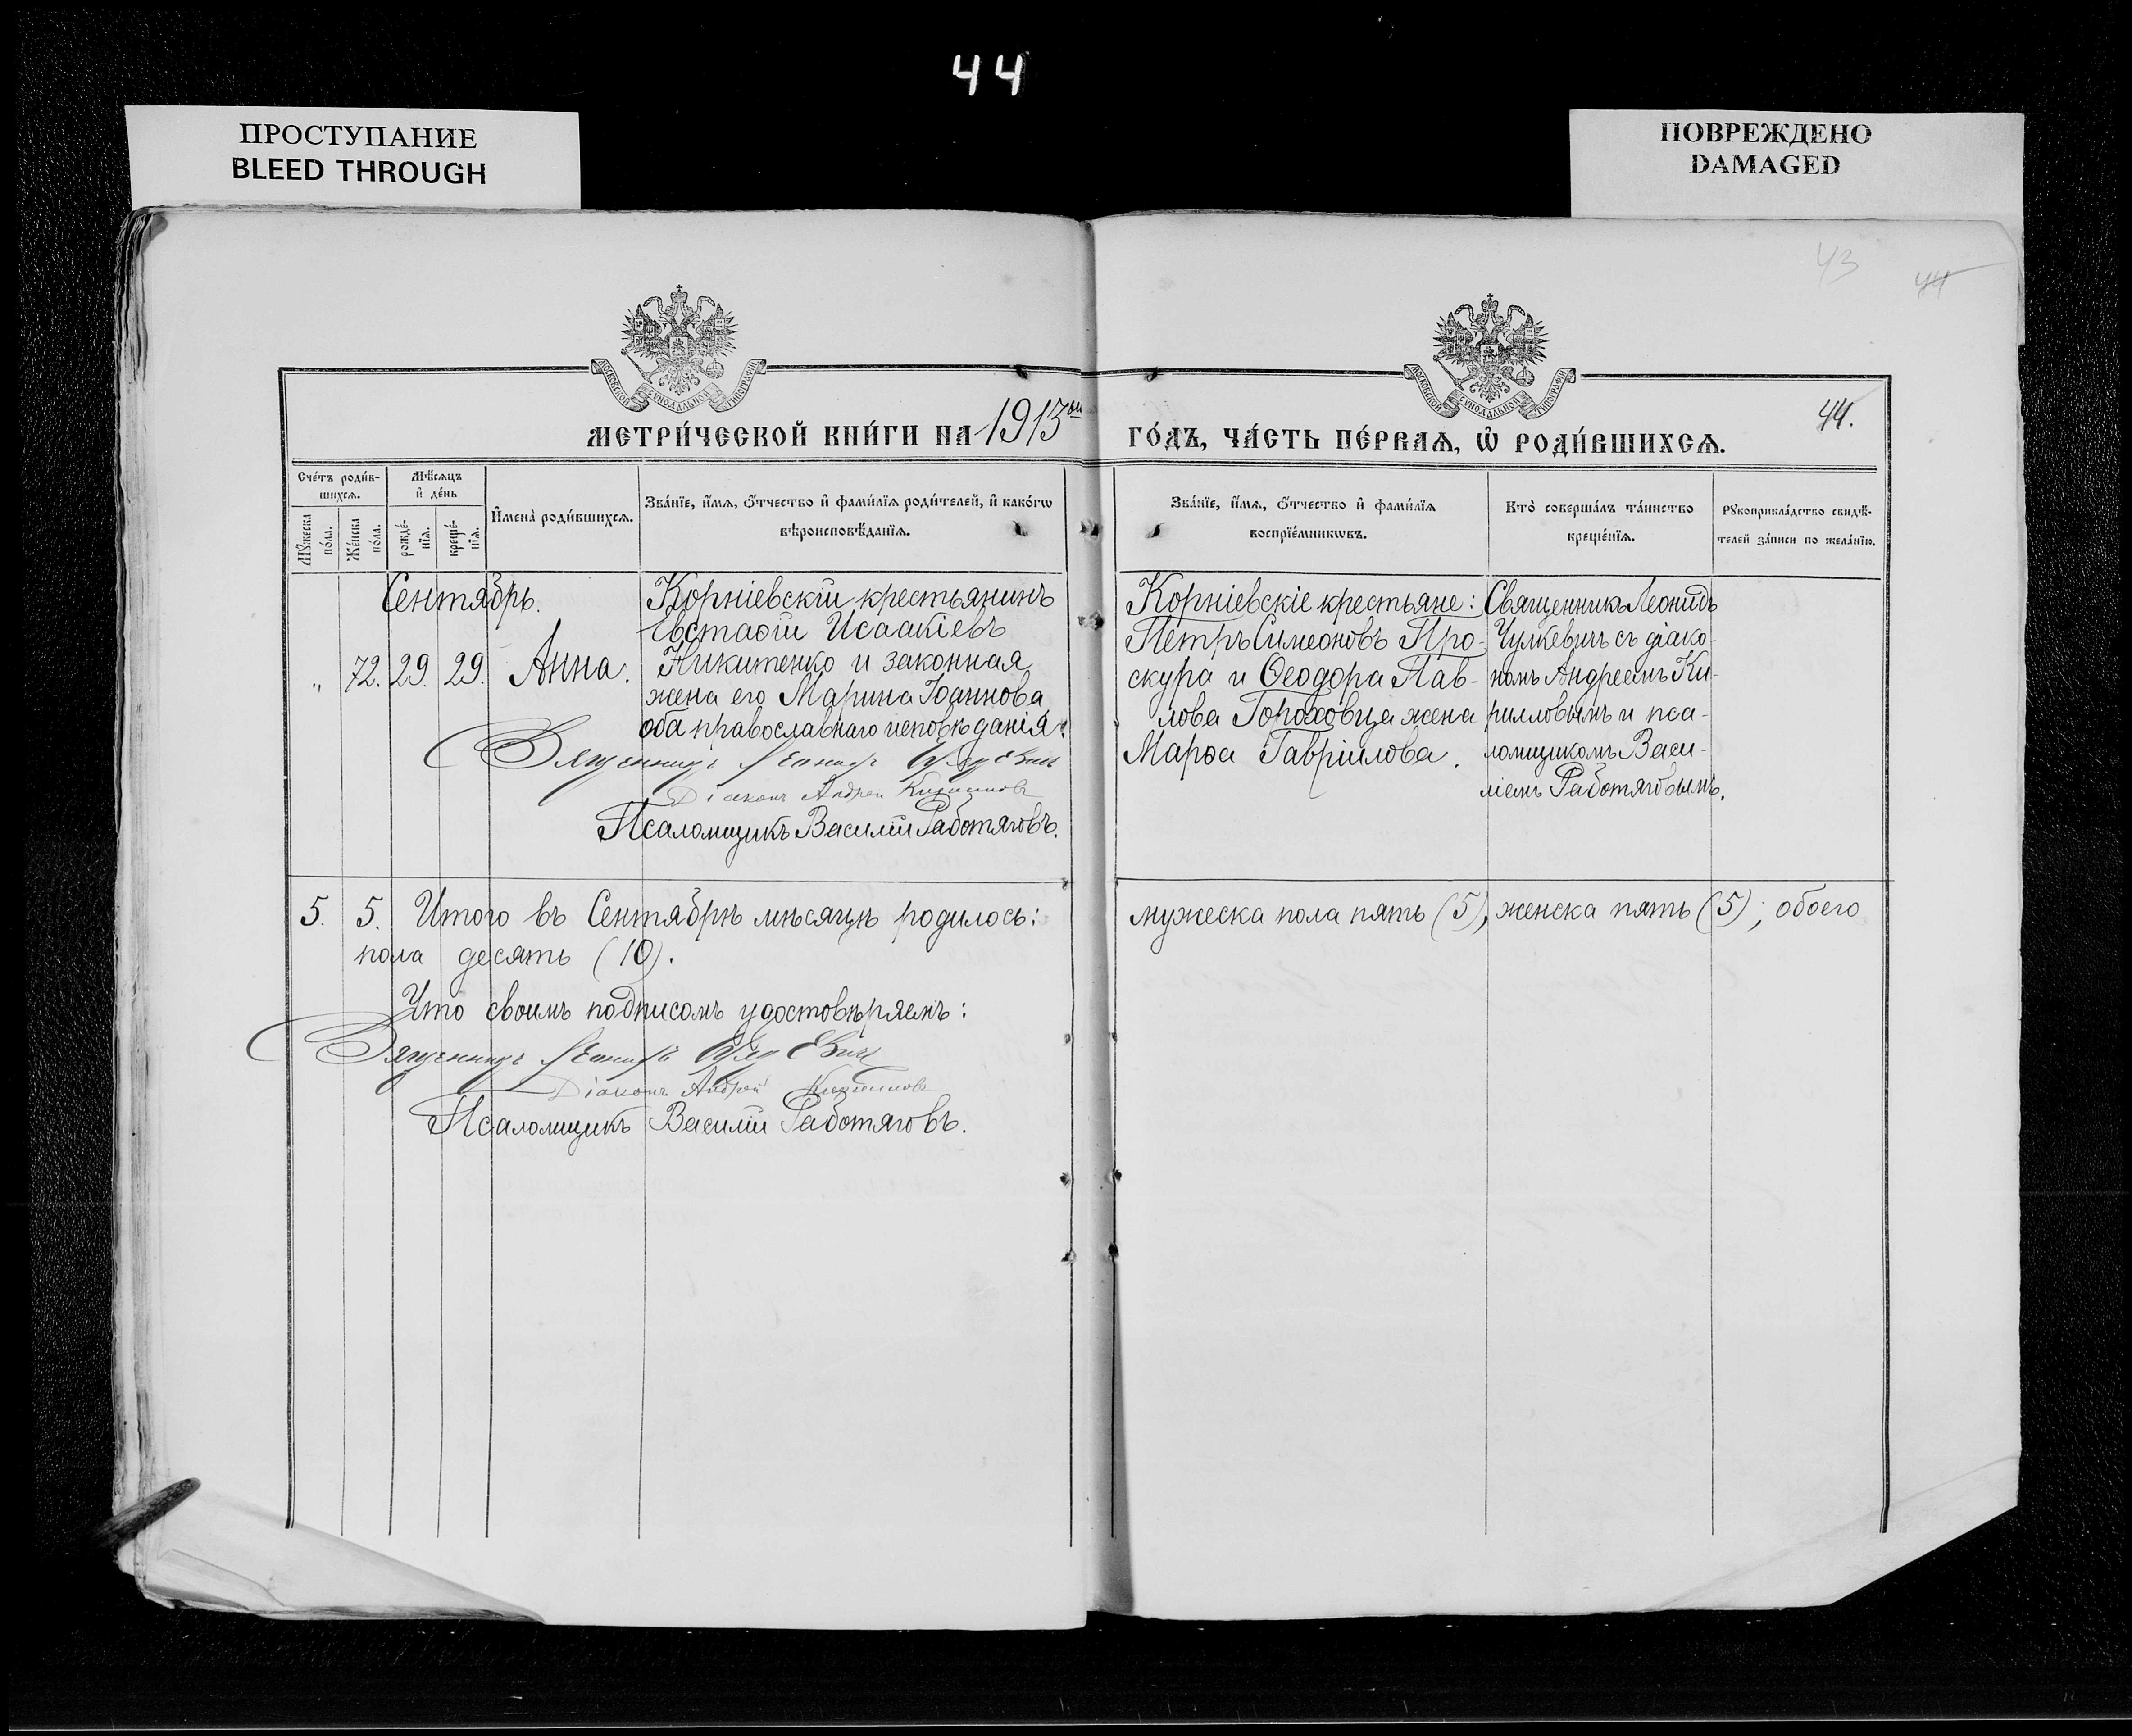 44
ПРОСТУПАНИЕ
BLEED THROUGH
ПОВРЕЖДЕНО
DAMAGED
43
44
МОСКОВСКОЙ СѴНОДАЛЬНОЙ ТИПОГРАФІИ
МОСКОВСКОЙ СѴНОДАЛЬНОЙ ТИПОГРАФІИ
МЕТРИ́ЧЕСКОЙ КНИ́ГИ НА 1913ый
ГО́ДЪ, ЧА́СТЬ ПЕ́РВАѦ, Ѡ҆ РОДИ́ВШИХСѦ.
44.
Сче́тъ роди́в-
шихсѧ.
Мѣ́сѧцъ
и҆ де́нь
Мꙋ́жеска
по́ла.
Же́нска
по́ла.
рожде́-
нїѧ.
креще́-
нїѧ.
И҆мена̀ роди́вшихсѧ.
Зва́нїе, и҆́мѧ, ѻ҆́тчество и҆ фами́лїѧ роди́телей, и҆ како́гѡ
вѣроисповѣ́данїѧ.
Зва́нїе, и҆́мѧ, ѻ҆́тчество и҆ фами́лїѧ
воспрїе́мникѡвъ.
Кто̀ соверша́лъ та́инство
креще́нїѧ.
Рꙋкоприкла́дство свидѣ́-
телей за́писи по жела́нїю.
Сентябрь.
„ 72. 29. 29. Анна.
Корніевскій крестьянинъ
Евстаѳій Исаакіевъ
Никитенко и законная
жена его Марина Іоаннова,
оба православнаго исповѣданія.
Священникъ Леонидъ
Діаконъ Андрей Кирилловъ
Псаломщикъ Василій Работяговъ.
Корніевскіе крестьяне:
Петръ Симеоновъ Про-
скура и Ѳеодора Пав-
лова Гороховца жена
Марѳа Гавріилова.
Священникъ Леонидъ
съ діако-
номъ Андреемъ Ки-
рилловымъ и пса-
ломщикомъ Васи-
ліемъ Работяговымъ.
5. 5. Итого въ Сентябрѣ мѣсяцѣ родилось: мужеска пола пять (5), женска пять (5), обоего
пола десять (10).
Что своимъ подписомъ удостовѣряемъ:
Священникъ Леонидъ
Діаконъ Андрей Кирилловъ
Псаломщикъ Василій Работяговъ.